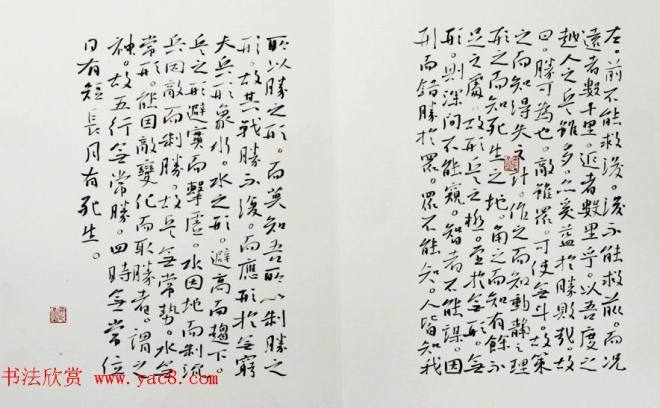 左。前不能救後。後不能救前。而况
遠者數十里。近者數里乎。以吾度之
越人之兵雖多。亦奚益於勝敗哉。故
曰。勝可為也。敵雖眾。可使無斗。故策
之而知得失之計。作之而知動靜之理
形之而知死生之地。角之而知有餘不
足之處。故形兵之極。至於無形。無
形。則深間不能窺。智者不能謀。因
形而錯勝於眾。眾不能知。人皆知我
所以勝之形。而莫知吾所以制勝之
形。故其戰勝不復。而應形於無窮
夫兵形象水。水之形。避高而趨下。
兵之形避實而擊虛。水因地而制流
兵因敵而制勝。故兵無常勢。水無
常形。能因敵變化而取勝者。謂之
神。故五行無常勝。四時無常位
日有短長月有死生。
书法欣赏 www.yac8.com